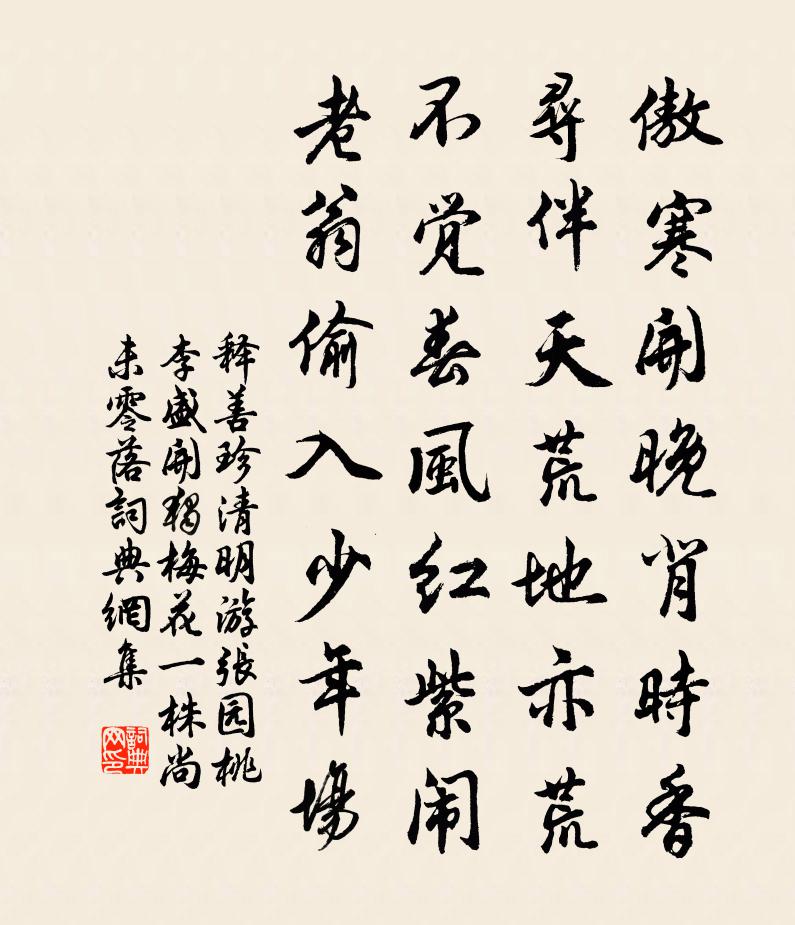 傲寒開晚背時香
尋伴天荒地亦荒
不觉春風红紫闹
老翁偷入少年場
释善珍清明游張园桃
李盛開獨梅花一株尚
未零落詞典網集
詞典网印